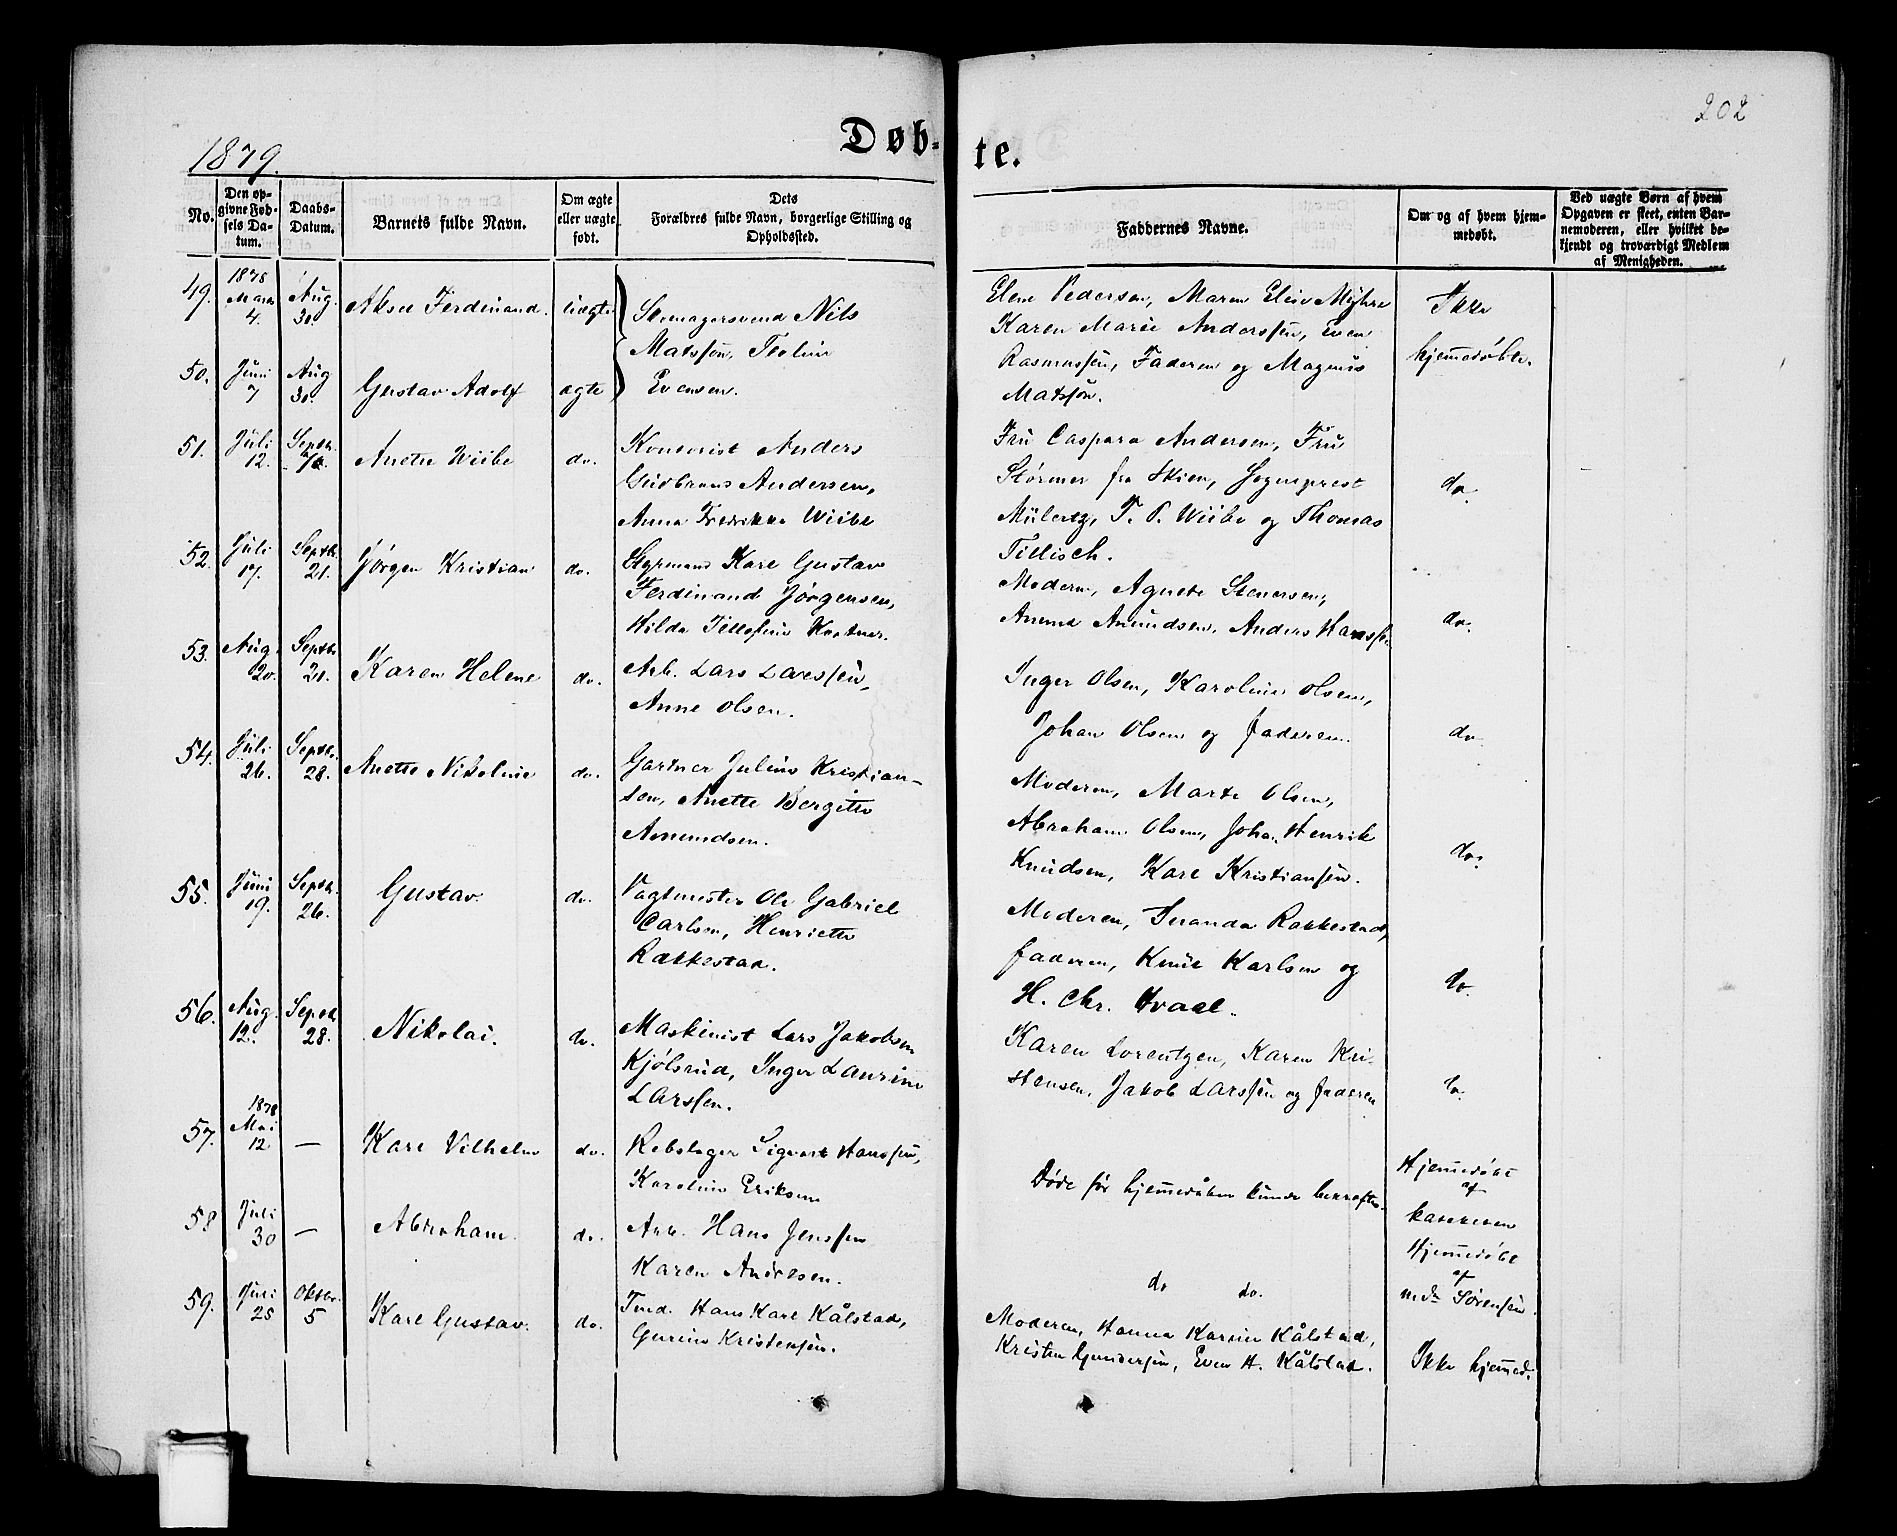 202
1879.
Døb-
te.
No.
Den op-
givne Fød-
sels Da-
tum.
Daabs-
Datum.
Barnets fulde Navn.
Om ægte
eller uægte
født.
Dets
Forældres fulde Navn, borgerlige Stilling og
Opholdssted.
Faddernes Navne.
Om og af hvem hjem-
medøbt.
Ved uægte Børn af hvem
Opgaven er skeet, enten Bar-
nemoderen, eller hvilket be-
kjendt og troværdigt Medlem
af Menigheden.
49.
1878
Marts
4.
Aug.
30.
Aksel Ferdinand.
uægte
Skomagersvend Nils
Matsson,
Elene Pedersen, Maren Elise Myhre
Karen Marie Anderssen, Even
Rasmussen, Faderen og Magnus
Matsson.
Ikke
hjemmedøbte.
50.
Juni
7
Aug
30.
Gustav Adolf
ægte
Evensen.
51.
Juli
12.
Septbr.
Anette Wiibe
do.
Kontorist Anders
Gudbrand Andersen,
Anna Fredrikke Wiibe
Fru Caspara Andersen, Fru
Størmer fra Skien, Sogneprest
Mülertz, T. P. Wiibe og Thomas
Tillisch.
do.
52.
Juli
17.
Septbr.
21.
Jørgen Kristian
do.
Styrmand Karl Gustav
Ferdinand Jørgensen,
Hilda
Moderen, Agnete Stenersen,
Amundsen, Anders Hanssen
do.
53.
Aug.
20.
Septbr.
21.
Karen Helene
do.
Arb. Lars Larssen,
Anne Olsen.
Inger Olsen, Karoline Olsen,
Johan Olsen og faderen.
do.
54.
Juli
26.
Septbr.
28.
Anette Nikoline
do.
Gartner Julius Kristian-
sen, Anette Bergitte
Amundsen.
Moderen, Marte Olsen,
Abraham Olsen, Johan Henrik
Knudsen, Karl Kristiansen.
do.
55.
Juni
19.
Septbr.
26.
Gustav.
do.
Vagtmester Ole Gabriel
Carlsen, Henriette
Rakkestad.
Moderen, Rakkestad,
faderen, Knut Karlsen og
H. Chr. Hvaal.
do.
56.
Aug.
12.
Septbr.
28.
Nikolai.
do.
Maskinist Lars Jakobsen
Kjølsrud, Inger Laurine
Larssen.
Karen Lorentzen, Karen Kri-
stensen, Jakob Larssen og faderen
do.
57.
1878
Mai
12
—
Karl Vilhelm
do.
Rebslager Sigvart Hanssen,
Karoline Eriksen
Døde før hjemmedåben kunde bekræftes.
Hjemmedøbt
af
58
Juli
30
—
Abraham.
do.
Arb. Hans Jenssen
Karen Andresen.
do do.
Hjemmedøbt
af
Sørensen.
59.
Juli
25
Oktbr.
5
Karl Gustav.
do.
Tmd. Hans Karl Kålstad,
Gurine Kristensen.
Moderen, Hanna Karine Kålstad,
Kristen Gundersen, Even H. Kålstad.
Ikke hjemmed.